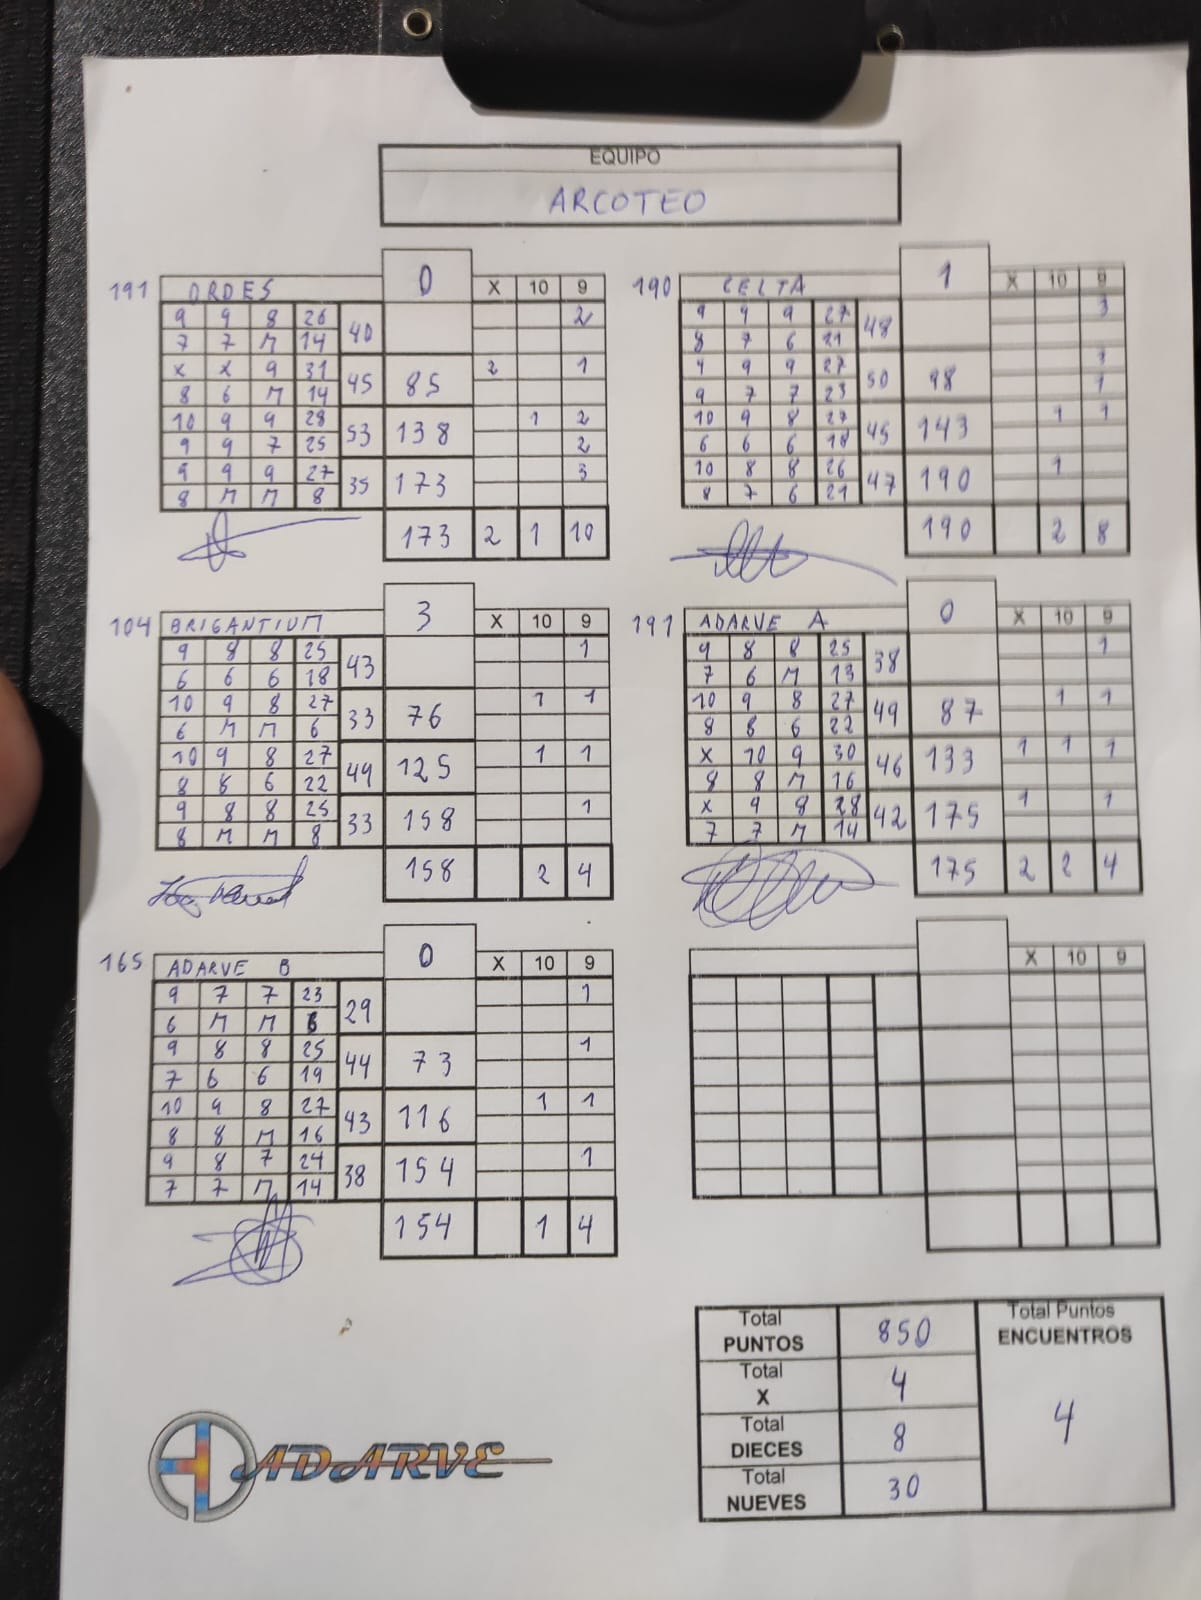 EQUIPO
ARCOTEO
191 ORDES 0 X 10 9
9 9 8 26 40 2
7 7 M 14
X X 9 31 45 85 2 1
8 6 M 14
10 9 9 28 53 138 1 2
9 9 7 25 2
9 9 9 27 35 173 3
8 M M 8
173 2 1 10
190 CELTA 1 X 10 9
9 9 9 27 48 3
8 7 6 21
9 9 9 27 50 98
9 7 7 23 1
10 9 8 27 45 143 1 1
6 6 6 18
10 8 8 26 47 190 1
8 7 6 21
190 2 8
104 BRIGANTIUM 3 X 10 9
9 8 8 25 43 1
6 6 6 18
10 9 8 27 33 76 1 1
6 M M 6
10 9 8 27 49 125 1 1
8 8 6 22
9 8 8 25 33 158 1
8 M M 8
158 2 4
191 ADARVE A 0 X 10 9
9 8 8 25 38 1
7 6 M 13
10 9 8 27 49 87 1 1
8 8 6 22
X 10 9 30 46 133 1 1 1
8 8 M 16
X 9 8 28 42 175 1 1
7 7 M 14
175 2 2 4
165 ADARVE B 0 X 10 9
9 7 7 23 29 1
6 M M 6
9 8 8 25 44 73 1
7 6 6 19
10 9 8 27 43 116 1 1
8 8 M 16
9 8 7 24 38 154 1
7 7 M 14
154 1 4
X 10 9
Total PUNTOS 850
Total X 4
Total DIECES 8
Total NUEVES 30
Total Puntos ENCUENTROS
4
ADARVE